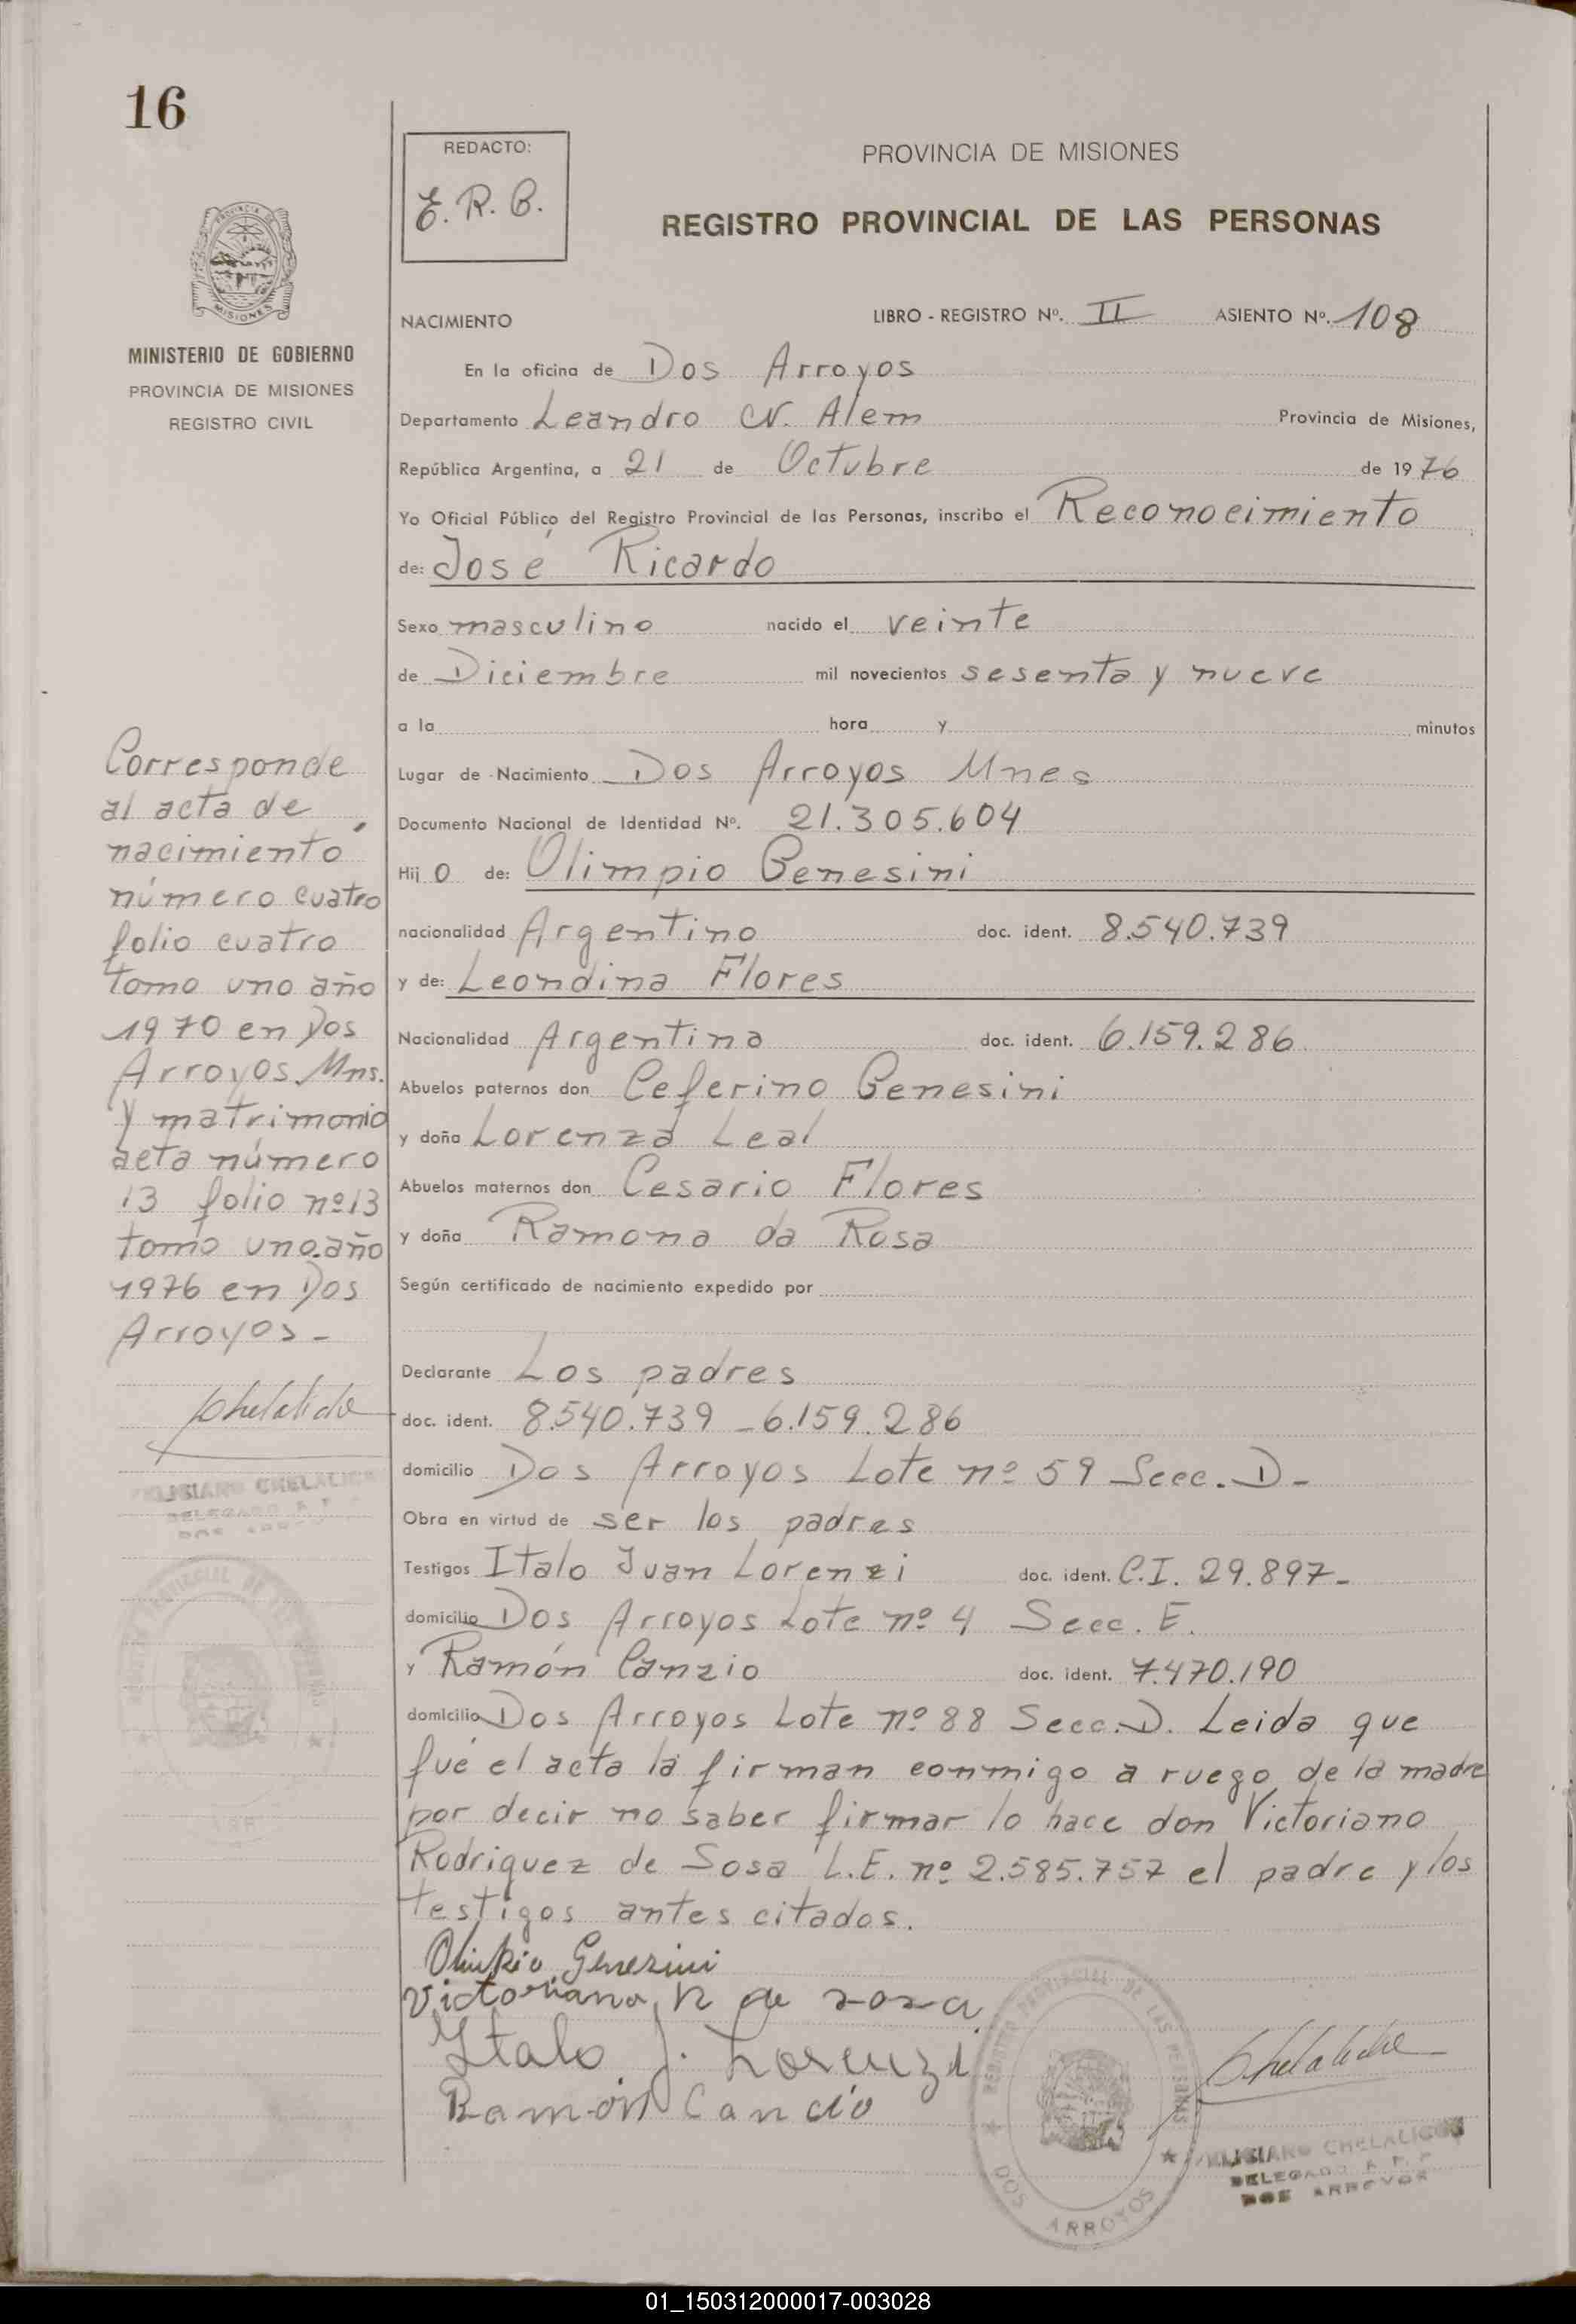 16
REDACTO:
E. R. B.
PROVINCIA DE MISIONES
REGISTRO PROVINCIAL DE LAS PERSONAS
MISIONES
MINISTERIO DE GOBIERNO
PROVINCIA DE MISIONES
REGISTRO CIVIL
NACIMIENTO LIBRO - REGISTRO Nº. II ASIENTO Nº. 108
En la oficina de Dos Arroyos
Departamento Leandro N. Alem Provincia de Misiones,
República Argentina, a 21 de Octubre de 1976
Yo Oficial Público del Registro Provincial de las Personas, inscribo el Reconocimiento
de: José Ricardo
Sexo masculino nacido el veinte
de Diciembre mil novecientos sesenta y nueve
a la hora y minutos
Lugar de Nacimiento Dos Arroyos Mnes
Documento Nacional de Identidad Nº. 21.305.604
Hij o de: Olimpio Genesini
nacionalidad Argentino doc. ident. 8.540.739
y de: Leondina Flores
Nacionalidad Argentina doc. ident. 6.159.286
Abuelos paternos don Ceferino Genesini
y doña Lorenza Leal
Abuelos maternos don Cesario Flores
y doña Ramona da Rosa
Según certificado de nacimiento expedido por
Declarante Los padres
doc. ident. 8.540.739 - 6.159.286
domicilio Dos Arroyos Lote nº 59 Secc. D-
Obra en virtud de ser los padres
Testigos Italo Juan Lorenzi doc. ident. C.I. 29.897-
domicilio Dos Arroyos Lote nº 4 Secc. E.
y Ramón Canzio doc. ident. 7.470.190
domicilio Dos Arroyos Lote nº 88 Secc. D. Leida que
fué el acta la firman conmigo a ruego de la madre
por decir no saber firmar lo hace don Victoriano
Rodriguez de Sosa L.E. nº 2.585.757 el padre y los
testigos antes citados.
Olimpio Genesini
Victoriano R de sosa
Italo J. Lorenzi
Ramón Cancio
Corresponde
al acta de
nacimiento
número cuatro
folio cuatro
tomo uno año
1970 en Dos
Arroyos Mns.
y matrimonio
acta número
13 folio nº 13
tomo uno año
1976 en Dos
Arroyos -
Chelaliche
FELISIANO CHELALICHE
DELEGADO
DOS ARROYOS
REGISTRO PROVINCIAL DE LAS PERSONAS
DOS ARROYOS
Chelaliche
FELISIANO
DELEGADO
DOS ARROYOS
01_150312000017-003028